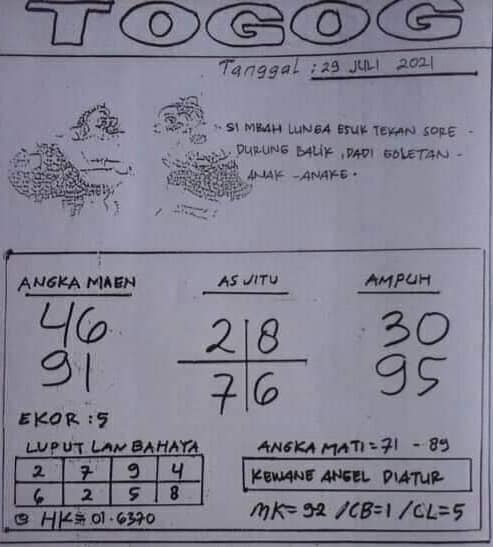 TOGOG
Tanggal : 29 JULI 2021
SI MBAH LUNGA ESUK TEKAN SORE -
DURUNG BALIK, DADI GOLETAN -
ANAK - ANAKE.
ANGKA MAEN
46
91
EKOR : 5
AS JITU
2 8
7 6
AMPUH
30
95
LUPUT LAN BAHAYA
2 7 9 4
6 2 5 8
HK = 01-6370
ANGKA MATI = 71 - 89
KEWANE ANGEL DIATUR
MK = 92 / CB = 1 / CL = 5